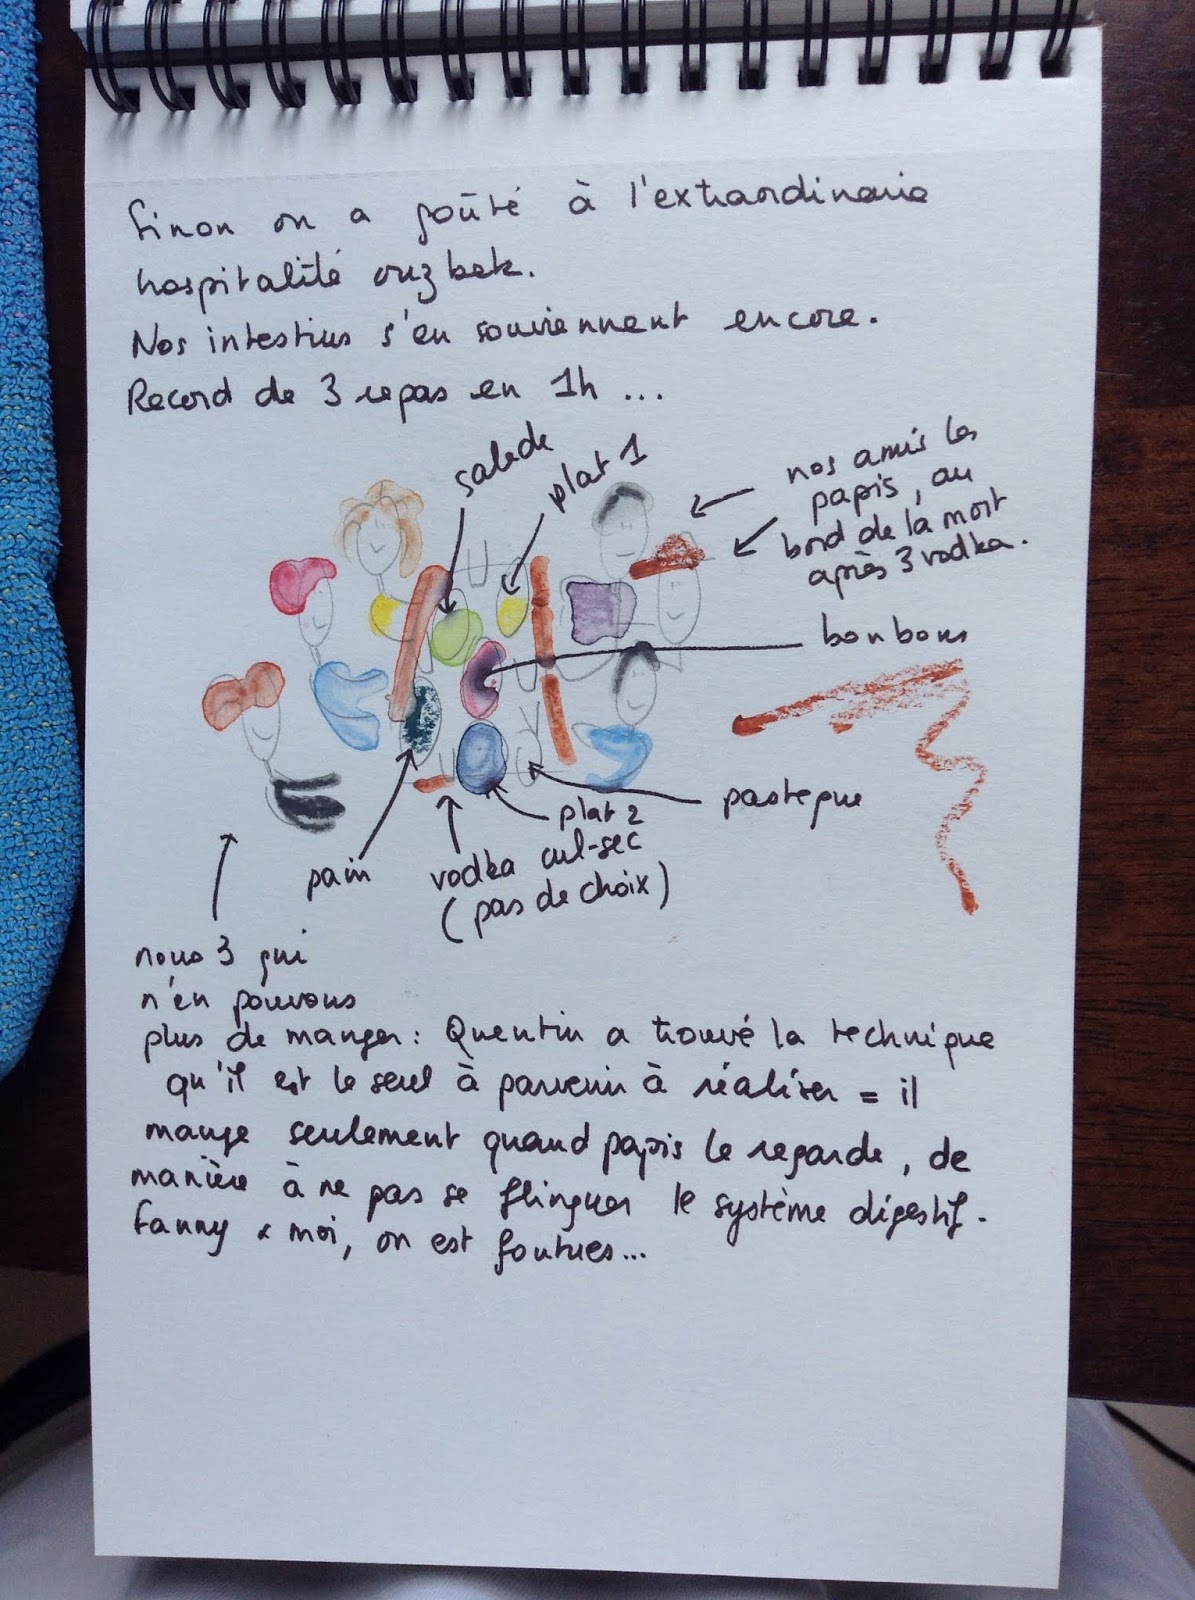 Sinon on a goûté à l'extraordinaire
hospitalité ouzbek.
Nos intestins s'en souviennent encore.
Record de 3 repas en 1h ...
salade
plat 1
nos amis les
papis, au
bord de la mort
après 3 vodka.
bonbons
pastèque
plat 2
pain
vodka cul-sec
(pas de choix)
nous 3 qui
n'en pouvons
plus de manger : Quentin a trouvé la technique
qu'il est le seul à parvenir à réaliser = il
mange seulement quand papis le regarde, de
manière à ne pas se flinguer le système digestif.
Fanny & moi, on est foutues...